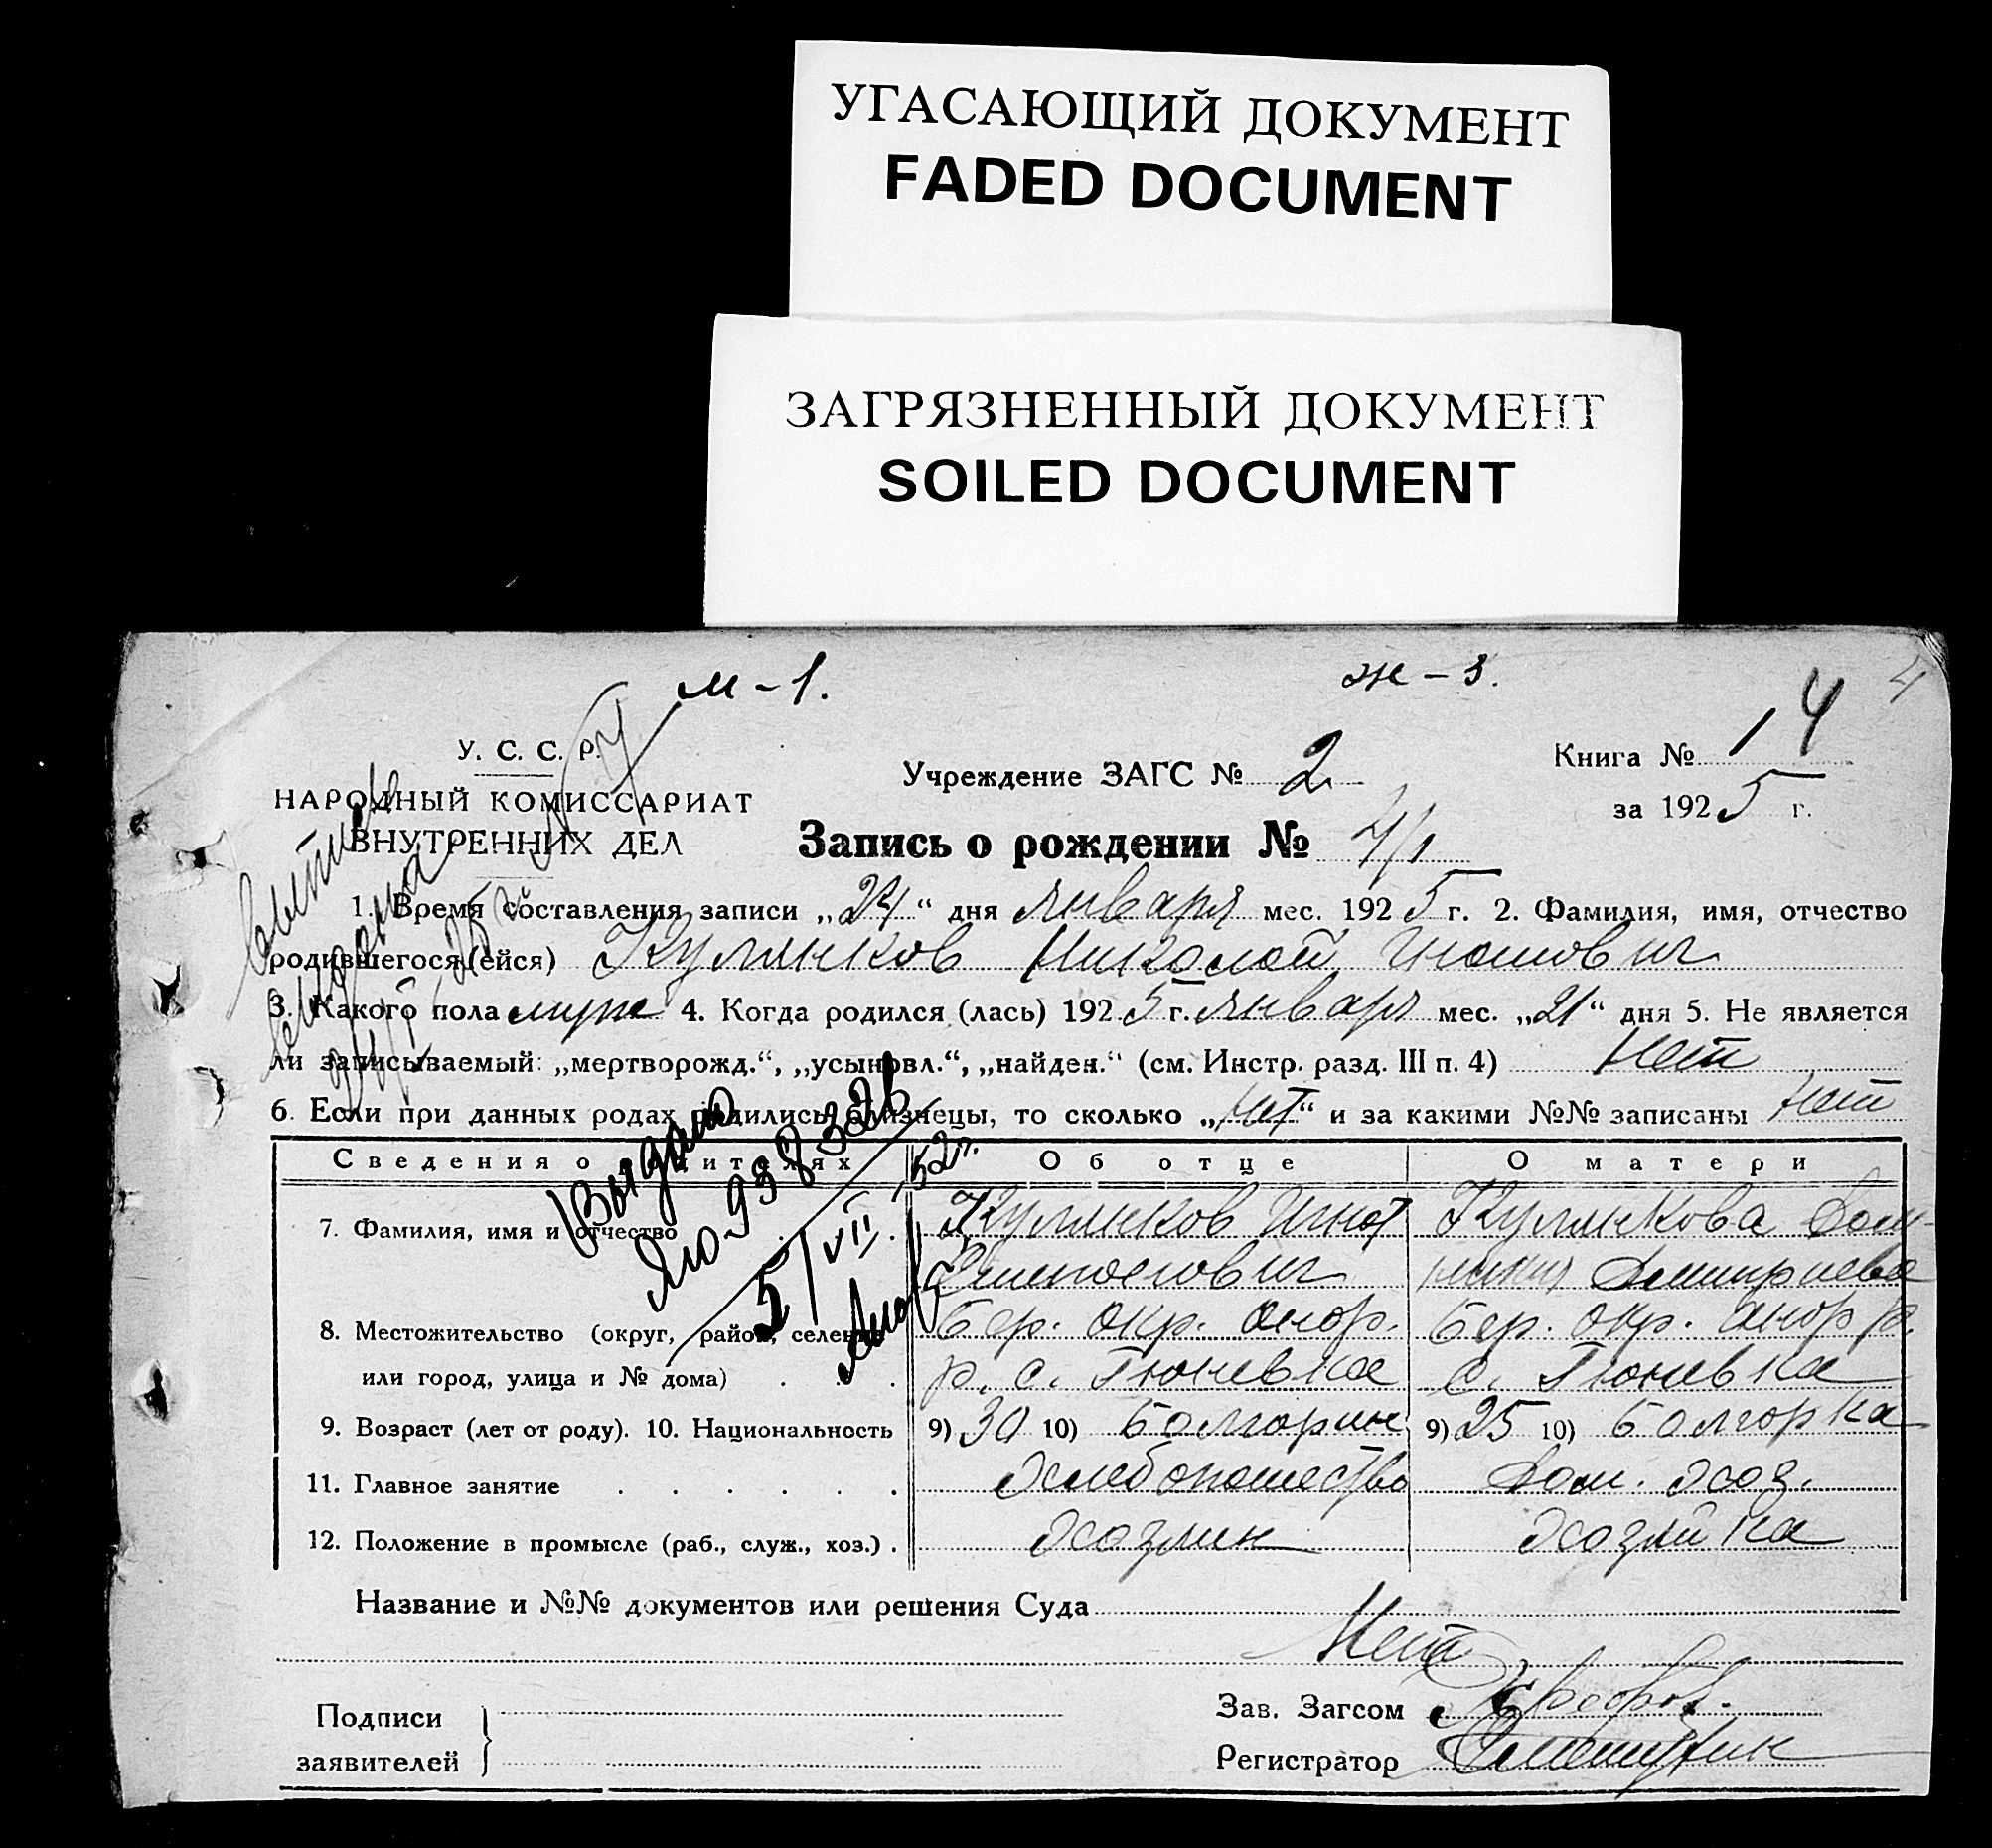 УГАСАЮЩИЙ ДОКУМЕНТ
FADED DOCUMENT
ЗАГРЯЗНЕННЫЙ ДОКУМЕНТ
SOILED DOCUMENT
м - 1.
ж - 3.
4
У. С. С. Р.
НАРОДНЫЙ КОМИССАРИАТ
ВНУТРЕННИХ ДЕЛ
Учреждение ЗАГС № 2
Книга № 1 4
за 1925 г.
Запись о рождении № 4/1
1. Время составления записи „24“ дня января мес. 1925 г. 2. Фамилия, имя, отчество
родившегося (ейся) Кулинков Николай Игнатович
3. Какого пола муж 4. Когда родился (лась) 1925 г. января мес. „21“ дня 5. Не является
ли записываемый: „мертворожд.“, „усыновл.“, „найден.“ (см. Инстр. разд. III п. 4) Нет
6. Если при данных родах родились близнецы, то сколько „нет“ и за какими №№ записаны Нет
Выдано
ЯЮ-938326
5/VII 52г.
Сведения о родителях Об отце О матери
7. Фамилия, имя и отчество Кулинков Игнат Кулинкова Дом-
Дмитриева
8. Местожительство (округ, район, селение Бер. окр. Аном. Бер. окр. Аном р.
или город, улица и № дома) р. с. Гюневка с. Гюневка
9. Возраст (лет от роду). 10. Национальность 9) 30 10) Болгарин 9) 25 10) болгарка
11. Главное занятие Хлебопашество Дом. хоз.
12. Положение в промысле (раб., служ., хоз.) Хозяин Хозяйка
Название и №№ документов или решения Суда
Нет
Подписи
заявителей
Зав. Загсом
Регистратор